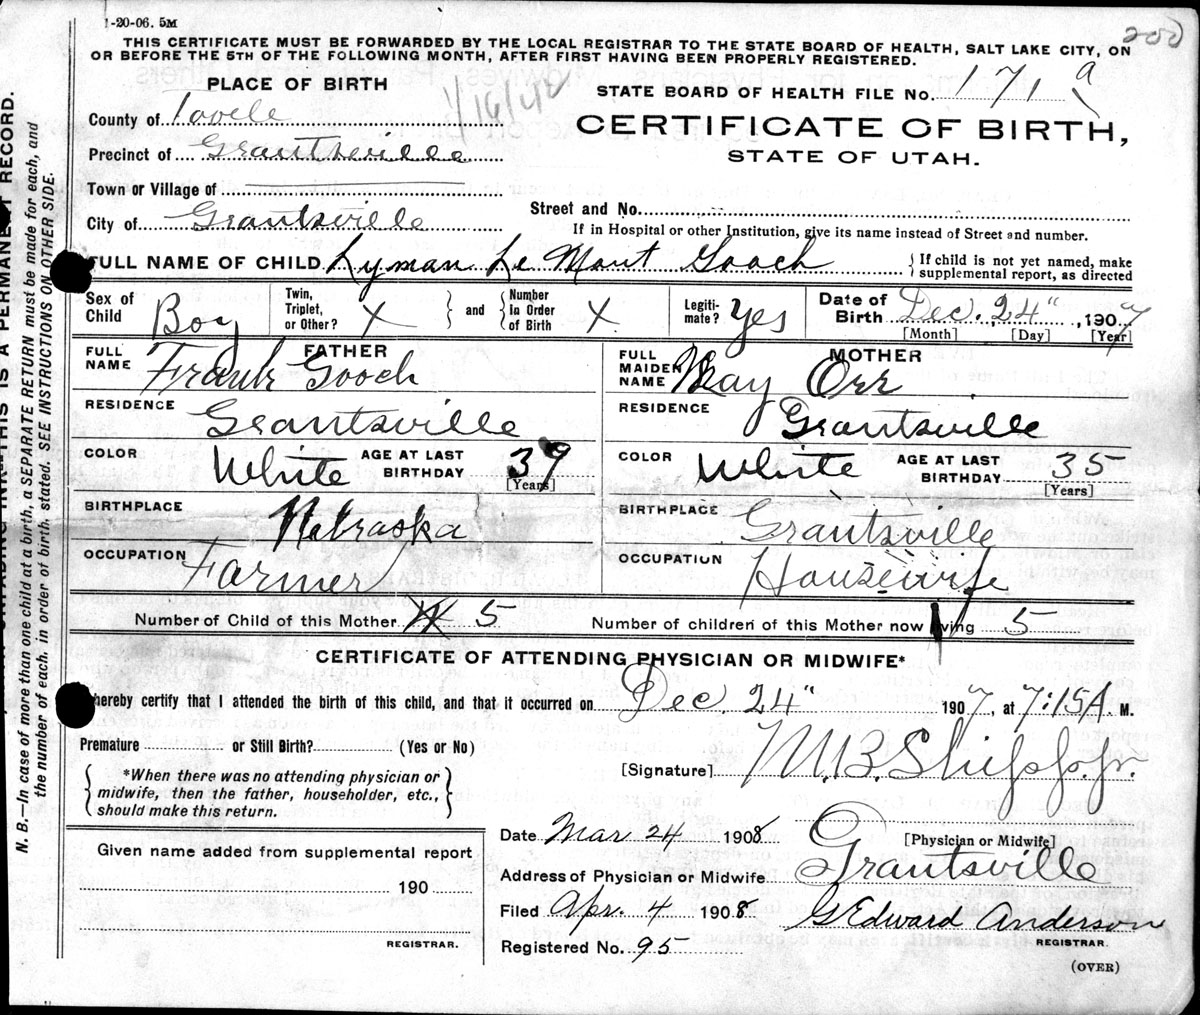 1-20-06. 5M
200
THIS CERTIFICATE MUST BE FORWARDED BY THE LOCAL REGISTRAR TO THE STATE BOARD OF HEALTH, SALT LAKE CITY, ON
OR BEFORE THE 5TH OF THE FOLLOWING MONTH, AFTER FIRST HAVING BEEN PROPERLY REGISTERED.
PLACE OF BIRTH
1/16/42
STATE BOARD OF HEALTH FILE No. 171 a
County of Tooele
CERTIFICATE OF BIRTH,
Precinct of Grantsville
STATE OF UTAH.
Town or Village of
City of Grantsville
Street and No.
If in Hospital or other Institution, give its name instead of Street and number.
FULL NAME OF CHILD Lyman Le Mont Gooch
{ If child is not yet named, make
supplemental report, as directed
Sex of Child Boy
Twin, Triplet, or Other? X } and { Number In Order of Birth X
Legiti-mate? Yes
Date of Birth Dec. 24", 1907
[Month] [Day] [Year]
FATHER
FULL NAME Frank Gooch
RESIDENCE Grantsville
COLOR White AGE AT LAST BIRTHDAY 39
[Years]
BIRTHPLACE Nebraska
OCCUPATION Farmer
MOTHER
FULL MAIDEN NAME May Orr
RESIDENCE Grantsville
COLOR White AGE AT LAST BIRTHDAY 35
[Years]
BIRTHPLACE Grantsville
OCCUPATION Housewife
Number of Child of this Mother 5
Number of children of this Mother now living 5
CERTIFICATE OF ATTENDING PHYSICIAN OR MIDWIFE*
hereby certify that I attended the birth of this child, and that it occurred on Dec. 24" 1907, at 7:15A. M.
Premature or Still Birth? (Yes or No)
{ *When there was no attending physician or
midwife, then the father, householder, etc.,
should make this return. }
[Signature] M.B. Shipp Jr.
[Physician or Midwife]
Date Mar 24 1908
Address of Physician or Midwife Grantsville
Filed Apr. 4 1908 G Edward Anderson
REGISTRAR.
Registered No. 95
(OVER)
Given name added from supplemental report
190
REGISTRAR.
THIS IS A PERMANENT RECORD.
N. B.—In case of more than one child at a birth, a SEPARATE RETURN must be made for each, and
the number of each, in order of birth, stated. SEE INSTRUCTIONS ON OTHER SIDE.